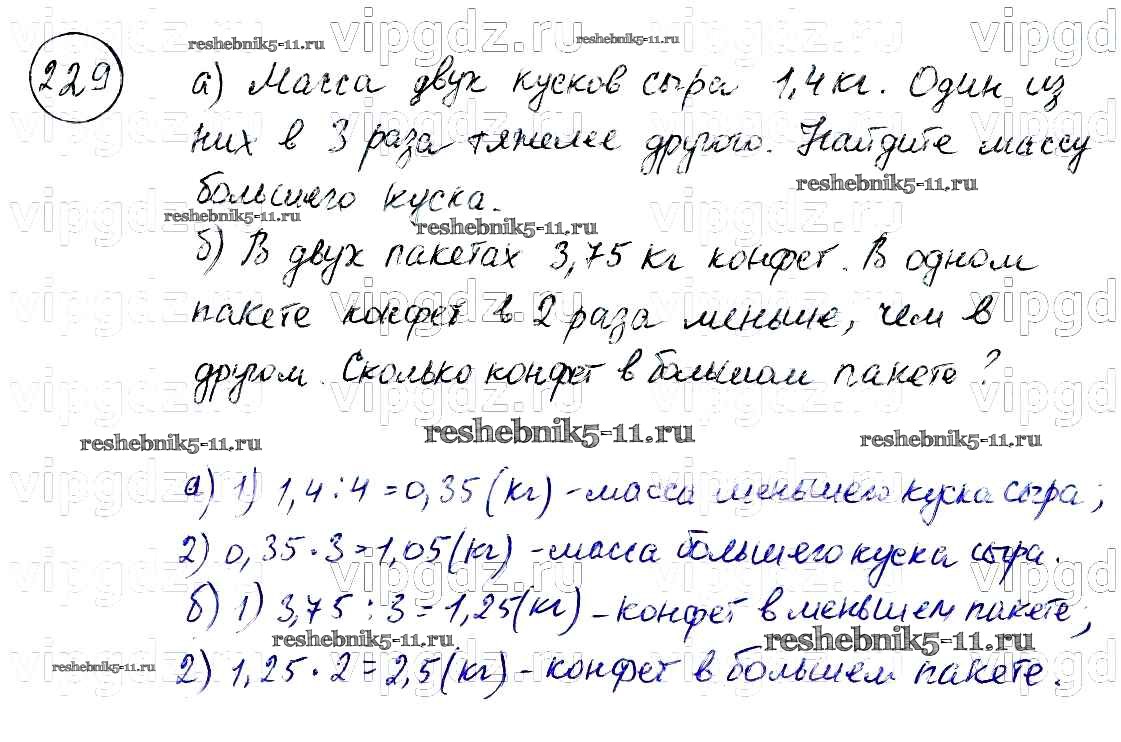 229
а) Масса двух кусков сыра 1,4 кг. Один из
них в 3 раза тяжелее другого. Найдите массу
большего куска.
б) В двух пакетах 3,75 кг конфет. В одном
пакете конфет в 2 раза меньше, чем в
другом. Сколько конфет в большом пакете?
а) 1) 1,4 : 4 = 0,35 (кг) - масса меньшего куска сыра;
2) 0,35 · 3 = 1,05 (кг) - масса большего куска сыра.
б) 1) 3,75 : 3 = 1,25 (кг) - конфет в меньшем пакете;
2) 1,25 · 2 = 2,5 (кг) - конфет в большем пакете.
reshebnik5-11.ru
vipgdz.ru